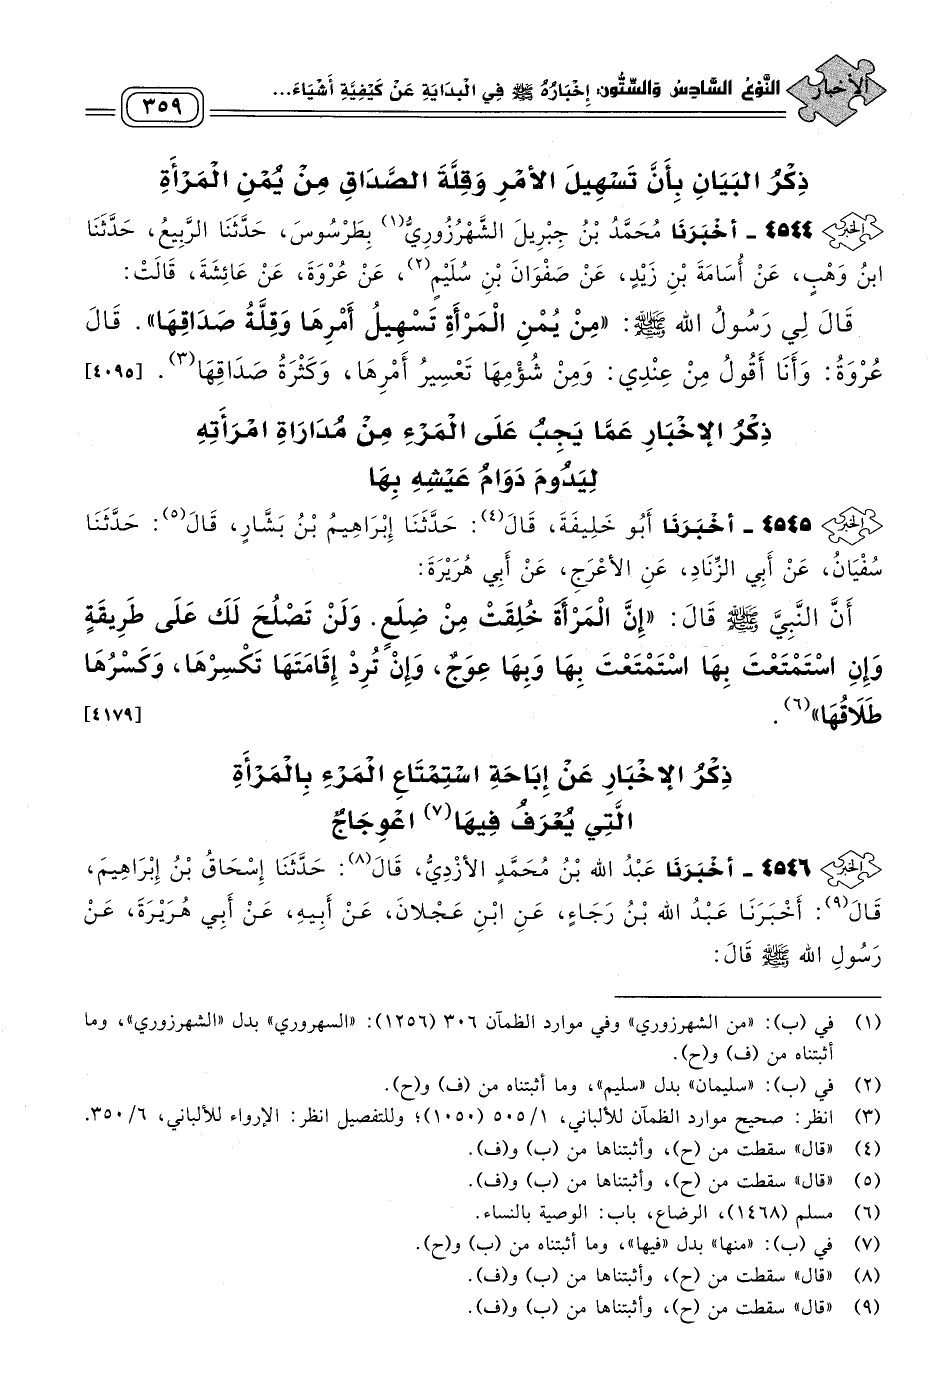 الأخبار
النَّوْعُ السَّادِسُ وَالسِّتُّونَ: إِخْبَارُهُ ﷺ فِي الْبِدَايَةِ عَنْ كَيْفِيَّةِ أَشْيَاءَ...
٣٥٩
ذِكْرُ البَيَانِ بِأَنَّ تَسْهِيلَ الأَمْرِ وَقِلَّةَ الصَّدَاقِ مِنْ يُمْنِ الْمَرْأَةِ
٤٥٤٤ ـ أَخْبَرَنَا مُحَمَّدُ بْنُ جِبْرِيلَ الشَّهْرُزُورِيُّ(١) بِطَرْسُوسَ، حَدَّثَنَا الرَّبِيعُ، حَدَّثَنَا
ابنُ وَهْبٍ، عَنْ أُسَامَةَ بْنِ زَيْدٍ، عَنْ صَفْوَانَ بْنِ سُلَيْمٍ(٢)، عَنْ عُرْوَةَ، عَنْ عَائِشَةَ، قَالَتْ:
قَالَ لِي رَسُولُ الله ﷺ: «مِنْ يُمْنِ الْمَرْأَةِ تَسْهِيلُ أَمْرِهَا وَقِلَّةُ صَدَاقِهَا». قَالَ
عُرْوَةُ: وَأَنَا أَقُولُ مِنْ عِنْدِي: وَمِنْ شُؤْمِهَا تَعْسِيرُ أَمْرِهَا، وَكَثْرَةُ صَدَاقِهَا(٣). [٤٠٩٥]
ذِكْرُ الإِخْبَارِ عَمَّا يَجِبُ عَلَى الْمَرْءِ مِنْ مُدَارَاةِ امْرَأَتِهِ
لِيَدُومَ دَوَامُ عَيْشِهِ بِهَا
٤٥٤٥ ـ أَخْبَرَنَا أَبُو خَلِيفَةَ، قَالَ(٤): حَدَّثَنَا إِبْرَاهِيمُ بْنُ بَشَّارٍ، قَالَ(٥): حَدَّثَنَا
سُفْيَانُ، عَنْ أَبِي الزِّنَادِ، عَنِ الأَعْرَجِ، عَنْ أَبِي هُرَيْرَةَ:
أَنَّ النَّبِيَّ ﷺ قَالَ: «إِنَّ الْمَرْأَةَ خُلِقَتْ مِنْ ضِلَعٍ. وَلَنْ تَصْلُحَ لَكَ عَلَى طَرِيقَةٍ
وَإِنِ اسْتَمْتَعْتَ بِهَا اسْتَمْتَعْتَ بِهَا وَبِهَا عِوَجٌ، وَإِنْ تُرِدْ إِقَامَتَهَا تَكْسِرْهَا، وَكَسْرُهَا
طَلَاقُهَا»(٦). [٤١٧٩]
ذِكْرُ الإِخْبَارِ عَنْ إِبَاحَةِ اسْتِمْتَاعِ الْمَرْءِ بِالْمَرْأَةِ
الَّتِي يُعْرَفُ فِيهَا(٧) اعْوِجَاجٌ
٤٥٤٦ ـ أَخْبَرَنَا عَبْدُ الله بْنُ مُحَمَّدٍ الأَزْدِيُّ، قَالَ(٨): حَدَّثَنَا إِسْحَاقُ بْنُ إِبْرَاهِيمَ،
قَالَ(٩): أَخْبَرَنَا عَبْدُ الله بْنُ رَجَاءٍ، عَنِ ابْنِ عَجْلَانَ، عَنْ أَبِيهِ، عَنْ أَبِي هُرَيْرَةَ، عَنْ
رَسُولِ الله ﷺ قَالَ:
(١) في (ب): «من الشهرزوري» وفي موارد الظمآن ٣٠٦ (١٢٥٦): «السهروري» بدل «الشهرزوري»، وما
أثبتناه من (ف) و(ح).
(٢) في (ب): «سليمان» بدل «سليم»، وما أثبتناه من (ف) و(ح).
(٣) انظر: صحيح موارد الظمآن للألباني، ١/ ٥٠٥ (١٠٥٠)؛ وللتفصيل انظر: الإرواء للألباني، ٦/ ٣٥٠.
(٤) «قال» سقطت من (ح)، وأثبتناها من (ب) و(ف).
(٥) «قال» سقطت من (ح)، وأثبتناها من (ب) و(ف).
(٦) مسلم (١٤٦٨)، الرضاع، باب: الوصية بالنساء.
(٧) في (ب): «منها» بدل «فيها»، وما أثبتناه من (ب) و(ح).
(٨) «قال» سقطت من (ح)، وأثبتناها من (ب) و(ف).
(٩) «قال» سقطت من (ح)، وأثبتناها من (ب) و(ف).